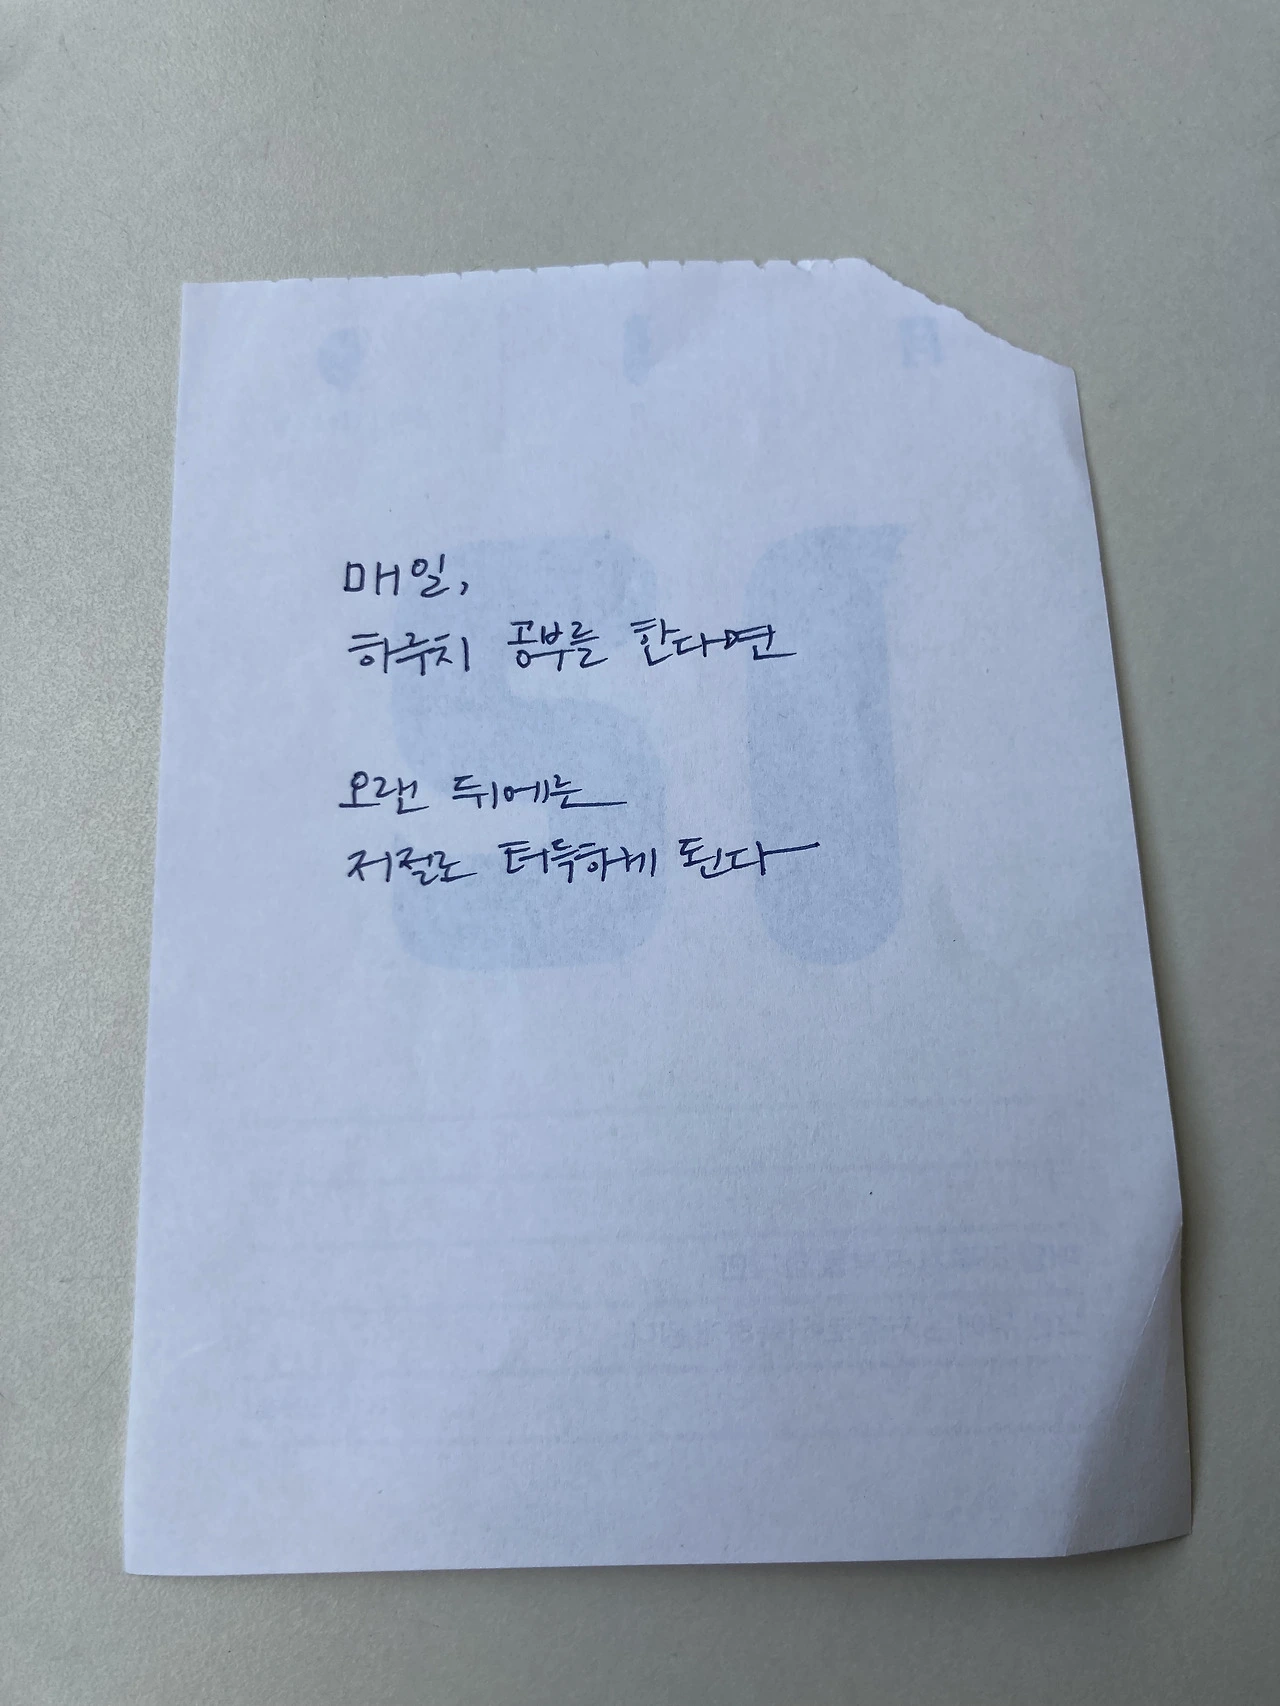 매일,
하루치 공부를 한다면
오랜 뒤에는
저절로 터득하게 된다